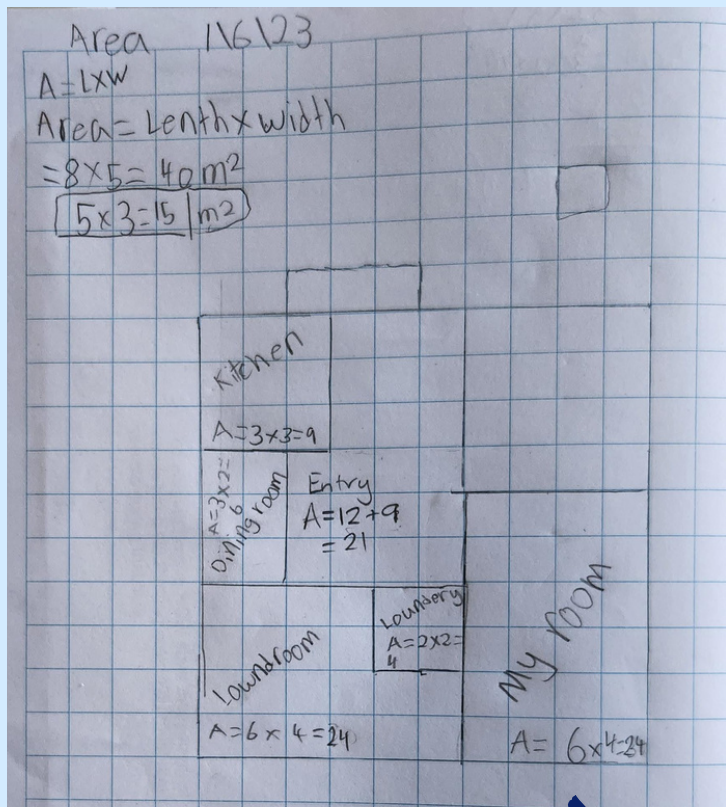 Area 1\6\23
A=LxW
Area=Lenthxwidth
=8x5=40m2
5x3=15 m2
Kitchen
A=3x3=9
A=3x2=
6
Dining room
Entry
A=12+9
=21
Loundery
A=2x2=
4
Loundroom
A=6x4=24
My room
A= 6x4=24